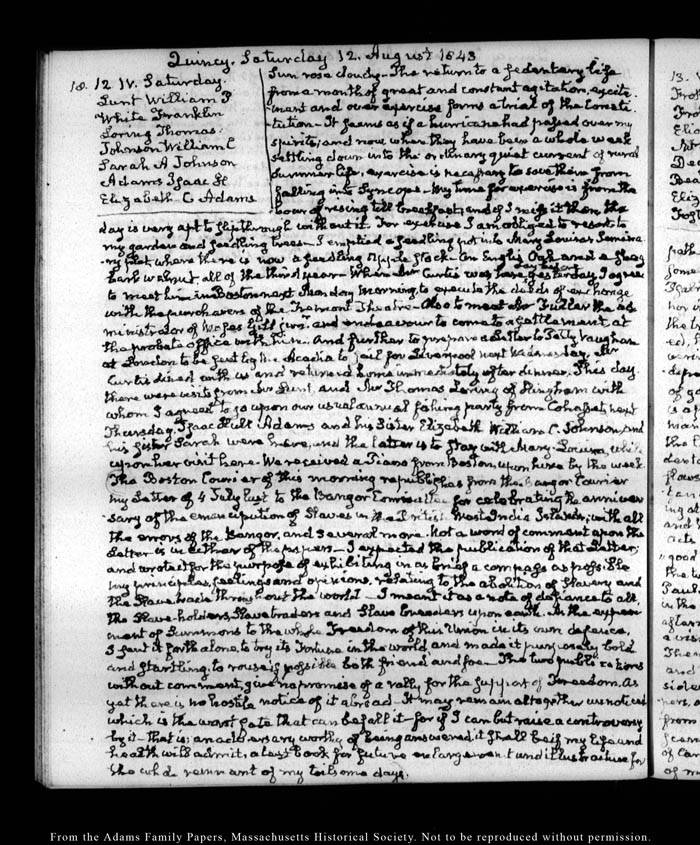 Quincy. Saturday 12. August 1843
18. 12 IV. Saturday.
Lunt William P
White Franklin
Loring Thomas.
Johnson William C
Sarah A Johnson
Adams Isaac H
Elizabeth C Adams
Sun rose cloudy. The return to a sedentary life
from a month of great and constant agitation, excite-
ment and over exercise forms a trial of the consti-
tution. It seems as if a hurricane had passed over my
spirits; and now when they have been a whole week
settling down into the ordinary quiet current of rural
summer life, exercise is necessary to save them from
falling into Syncope. My time for exercise is from the
hour of rising till breakfast; and if I miss it then the
day is very apt to slip through without it. For exercise I am obliged to resort to
my garden and seedling trees. I emptied a seedling pot into Mary Louisa's
plat, where there is now a seedling Apple stock. An English Oak and a shag
bark walnut, all of the third year. When Mr Curtis was here yesterday, I agreed
to meet him in Boston next Monday Morning, to execute the deeds of exchange
with the purchasers of the Tremont Theatre. Also to meet Mr Fuller the ad-
ministrator of and endeavour to come to a settlement at
the probate office with him. And further to prepare a Letter to Petty Vaughan
at London to be sent by the Acadia to sail for Liverpool next Wednesday. Mr
Curtis dined with us and returned home immediately after dinner. This day
there were visits from Mr Lunt, and Mr Thomas Loring of Hingham with
whom I agreed to go upon our usual annual fishing party from Cohasset next
Thursday. Isaac Hull Adams and his Sister Elizabeth William C. Johnson and
his sister Sarah were here, and the latter is to stay with Mary Louisa, while
upon her visit here. We received a Piano from Boston, upon hire by the week.
The Boston Courier of this morning republishes from the Bangor Courier
my Letter of 4 July last to the Bangor Committee for celebrating the anniver-
sary of the emancipation of Slaves in the British West India Islands; with all
the errors of the Bangor, and several more. Not a word of comment upon the
Letter is in either of the papers. I expected the publication of that Letter;
and wrote it for the purpose of exhibiting in as brief a compass as possible
my principles, feelings and opinions, relating to the abolition of Slavery and
the Slave trade throughout the world. I meant it as a note of defiance to all
the Slave-holders, Slave traders and Slave breeders upon earth. As the experi-
ment of summons to the whole Freedom of this Union in its own defence,
I sent it forth alone, to try its Fortune in the world, and made it purposely bold
and startling, to rouse if possible both friend and foe. The two publications
without comment, give no promise of a rally for the support of Freedom. As
yet there is no hostile notice of it abroad. It may remain altogether unnoticed
which is the worst fate that can befall it for if I can but raise a controversy
by it that is, an adversary worthy of being answered it shall be if my life and
health will admit, a text book for future enlargement and illustration for
the whole remnant of my toilsome days.
From the Adams Family Papers, Massachusetts Historical Society. Not to be reproduced without permission.